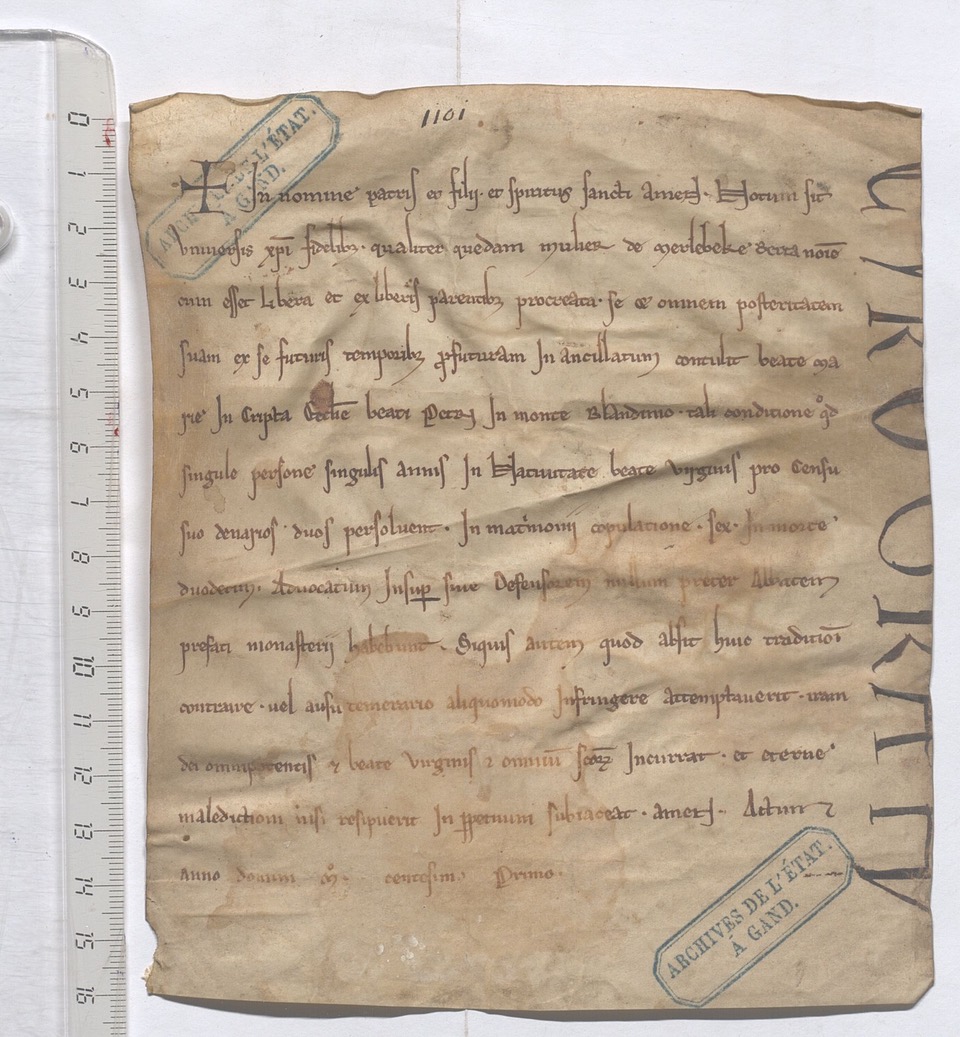 1101
In nomine patris et filij· et spiritus sancti amen· Notum sit
vniuersis xpi fidelibꝫ· qualiter quedam mulier de Merlebeke noīe
cum esset libera et ex liberis parentibꝫ procreata· se omnem posteritatem
suam ex se futuris temporibꝫ ꝓfuturam In ancillatum contulit beate ma
rie In Cripta beati Petri In monte Blandinio· tali conditione qd
singule persone singulis annis In Natiuitate beate virginis pro Censu
suo denarios duos persoluent· In matrimonij copulatione· sex· In morte
duodecim· Aduocatum Insuꝑ siue Defensorem nullum preter Abbatem
prefati monasterij habebunt· Siquis autem quod absit huic traditioī
contraire· uel ausu temerario aliquomodo Infringere attemptauerit· iram
dei omnipotentis ⁊ beate virginis ⁊ omniū scōꝝ Incurrat· et eterne
maledictioni nisi resipuerit In ꝑpetuum subiaceat· amen· Actum
Anno domini mº· centesimo Primo·
CYROGRAFF
ARCHIVES DE L'ÉTAT.
À GAND.
ARCHIVES DE L'ÉTAT.
À GAND.
0
1
2
3
4
5
6
7
8
9
10
11
12
13
14
15
16